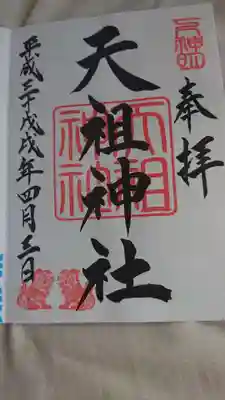 奉拝
天祖神社
天祖神社
平成三十戊戌年四月三日